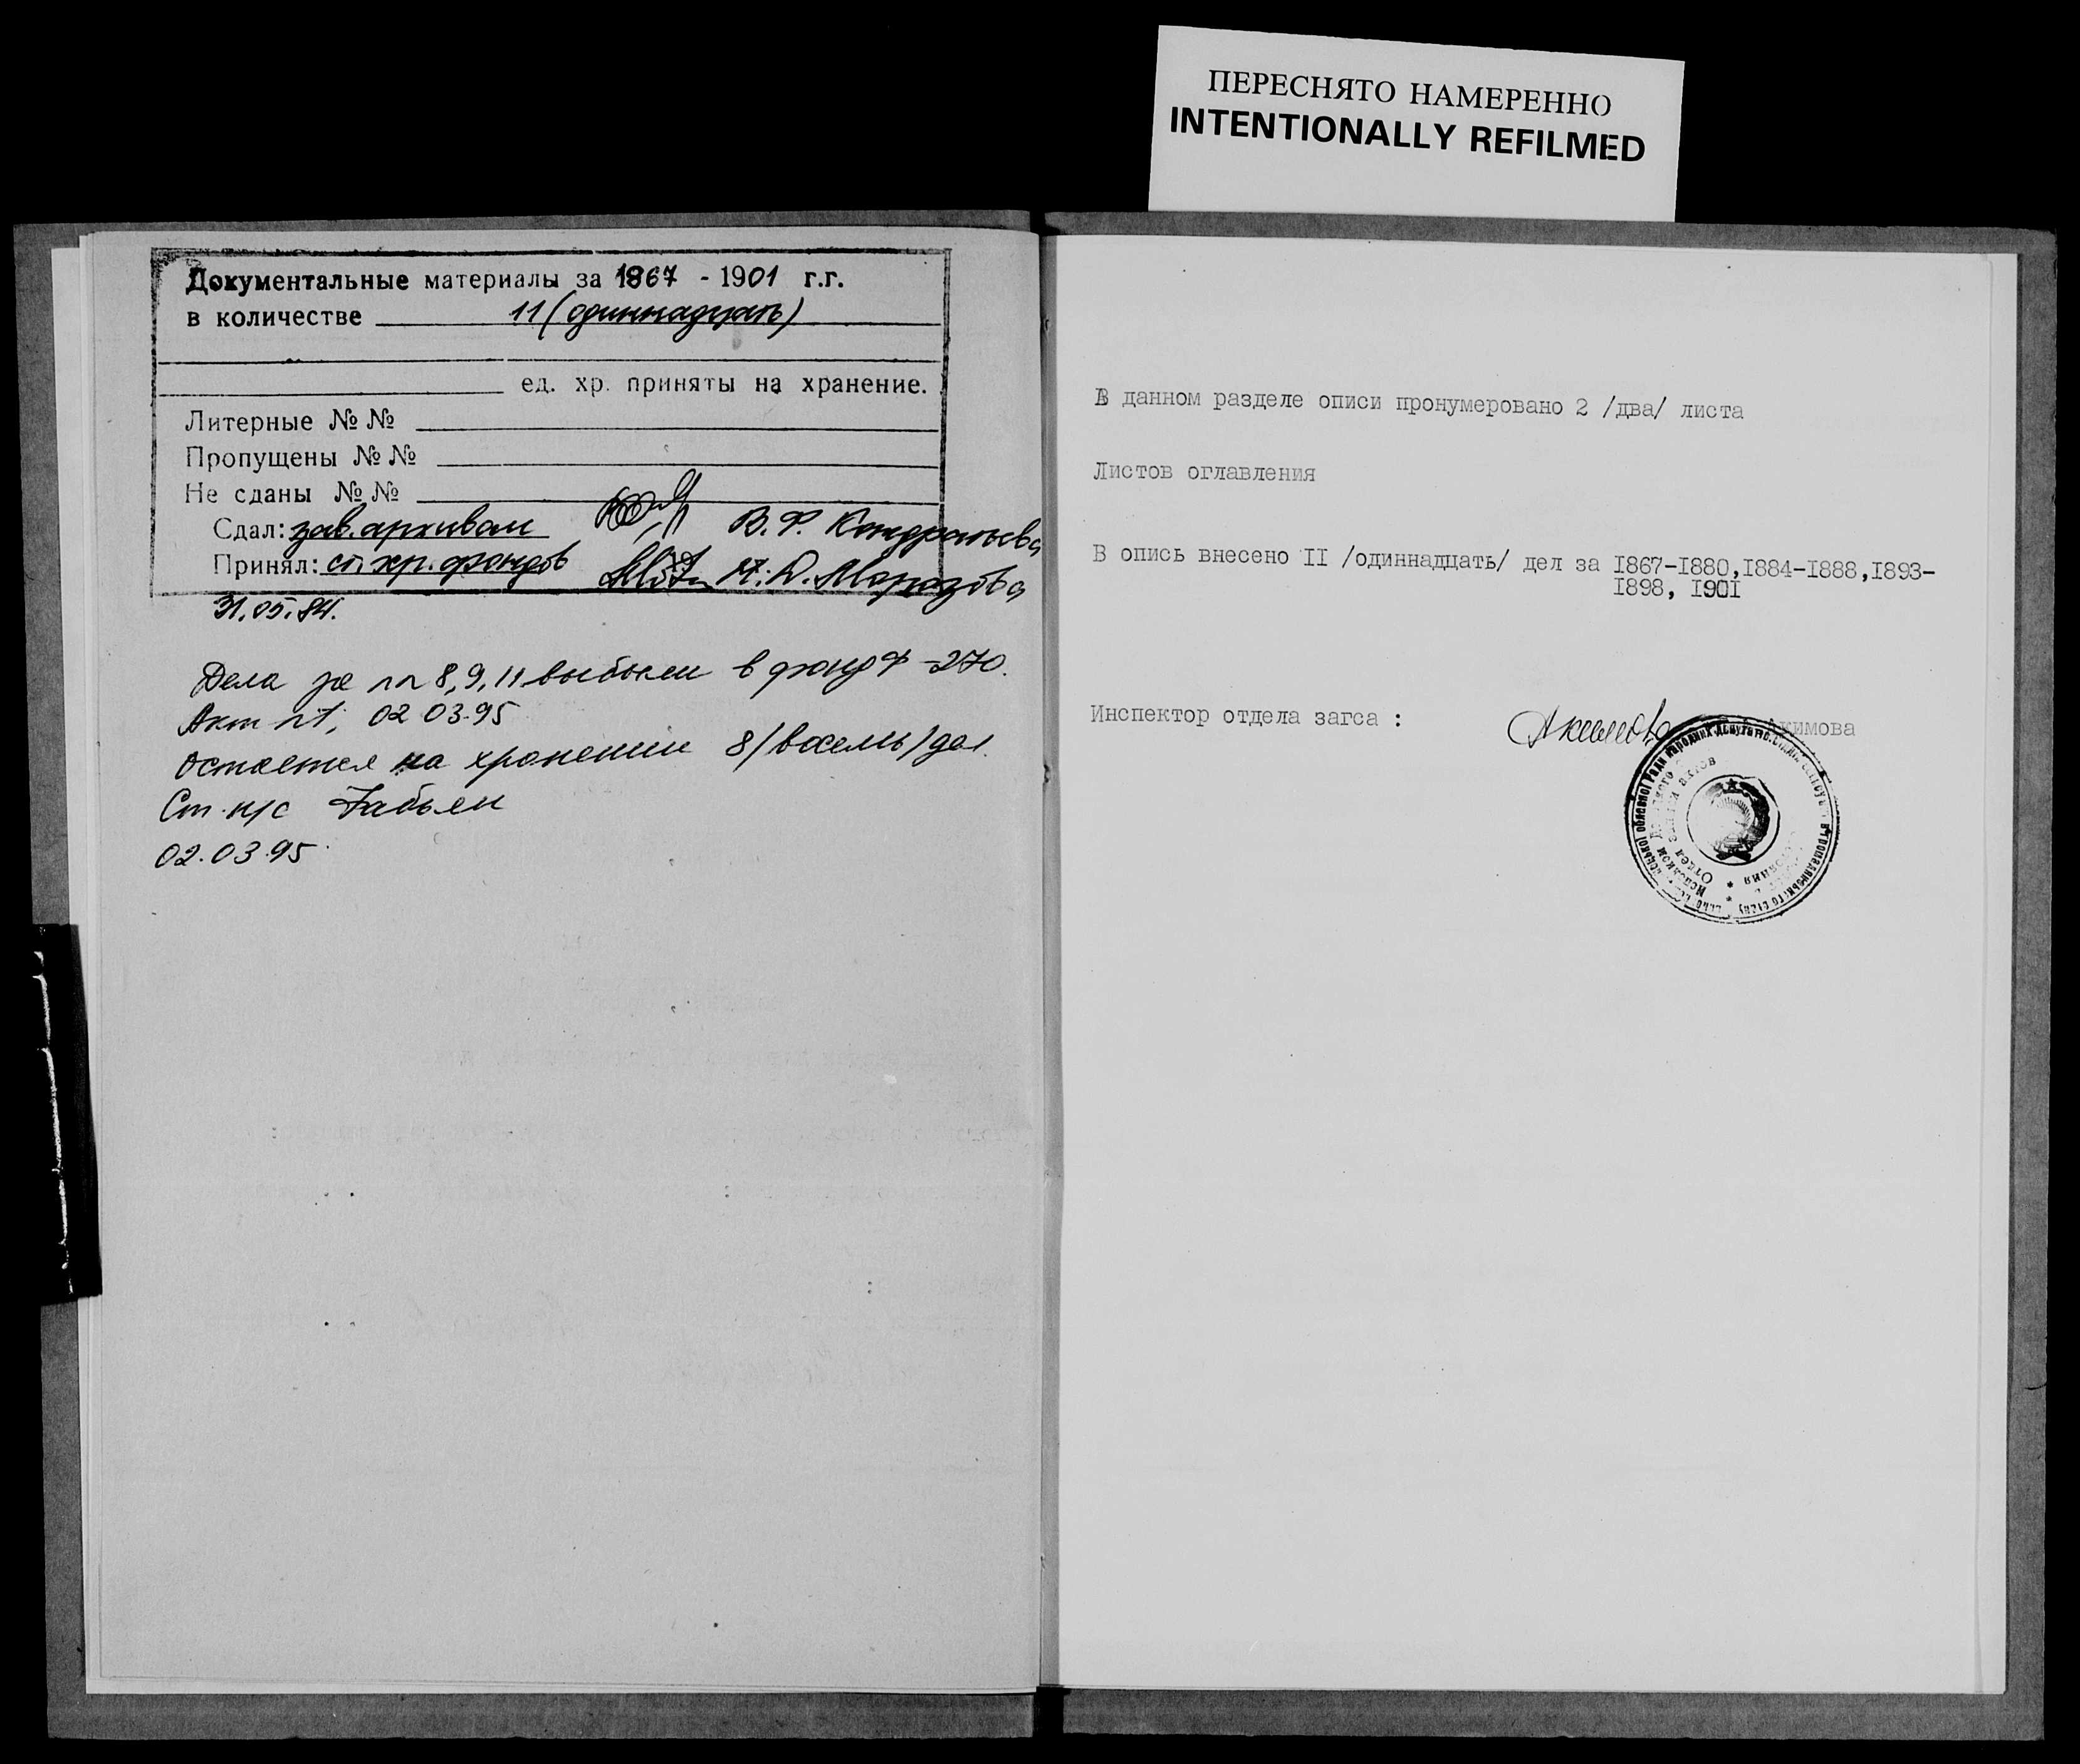 ПЕРЕСНЯТО НАМЕРЕННО
INTENTIONALLY REFILMED
Документальные материалы за 1867 - 1901 г.г.
в количестве 11 (одиннадцать)
ед. хр. приняты на хранение.
Литерные №№
Пропущены №№
Не сданы №№
Сдал: зав. архивом В. Ф. Кондратьева
Принял: ст. хр. фондов
31.05.84.
Дела за 8, 9, 11 выбыли в фонд Ф-270.
Акт №1, 02 03.95
Остается на хранении 8/восемь/дел.
Ст. н/с
02.03.95
В данном разделе описи пронумеровано 2 /два/ листа
Листов оглавления
В опись внесено II /одиннадцать/ дел за I867-I880,I884-I888,I893-
I898, I90I
Инспектор отдела загса : Акимова